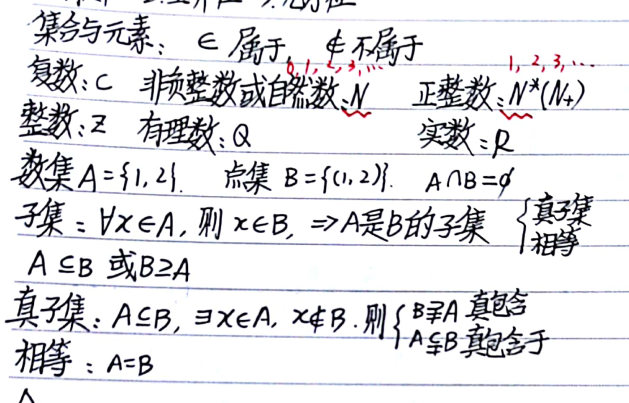 集合与元素: ∈ 属于, ∉ 不属于
0, 1, 2, 3, … 1, 2, 3, …
复数: C 非负整数或自然数: N 正整数: N*(N₊)
整数: Z 有理数: Q 实数: R
数集 A={1,2}. 点集 B={(1,2)}. A∩B=∅
子集: ∀x∈A, 则 x∈B, ⇒A是B的子集 { 真子集
相等
A⊆B 或 B⊇A
真子集: A⊆B, ∃x∈A, x∉B. 则 { B⫌A 真包含
A⫋B 真包含于
相等: A=B